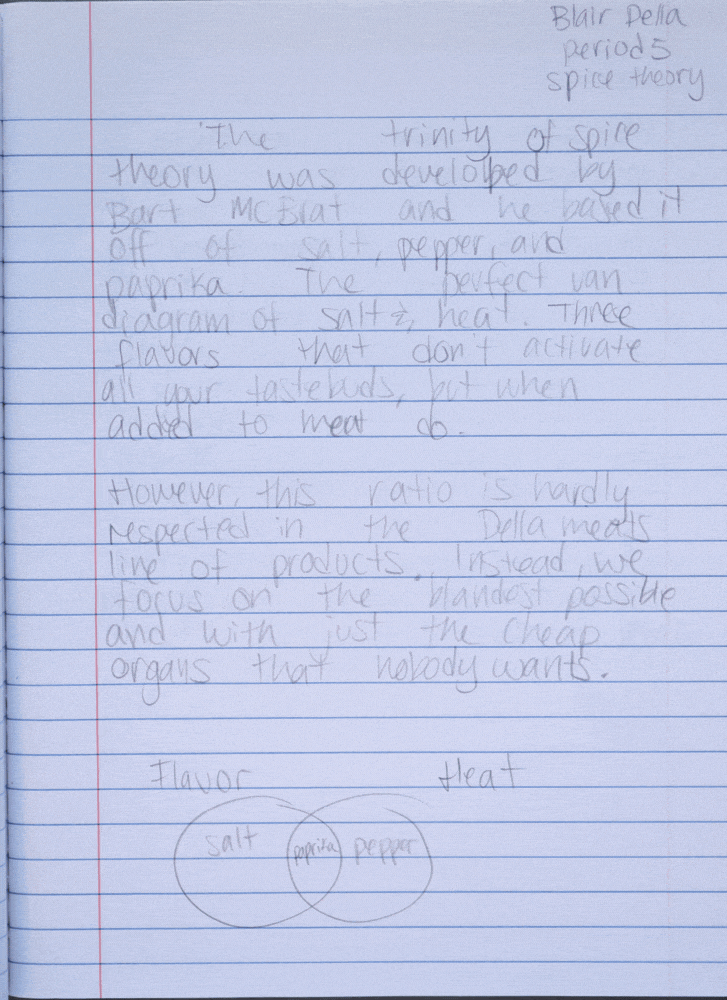 Blair Della
period 5
spice theory
The trinity of spice
theory was developed by
Bart McBrat and he based it
off of salt, pepper, and
paprika. The perfect van
diagram of salt & heat. Three
flavors that don't activate
all your tastebuds, but when
added to meat do.
However, this ratio is hardly
respected in the Della meats
line of products. Instead, we
focus on the blandest possible
and with just the cheap
organs that nobody wants.
Flavor Heat
salt paprika pepper